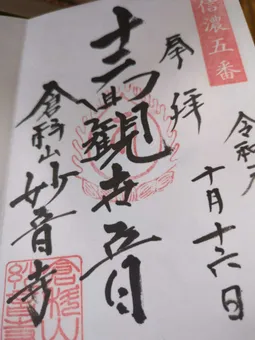 信濃五番
奉拝
令和
十月十六日
十一面観世音
倉科山妙音寺
倉科山
妙音寺